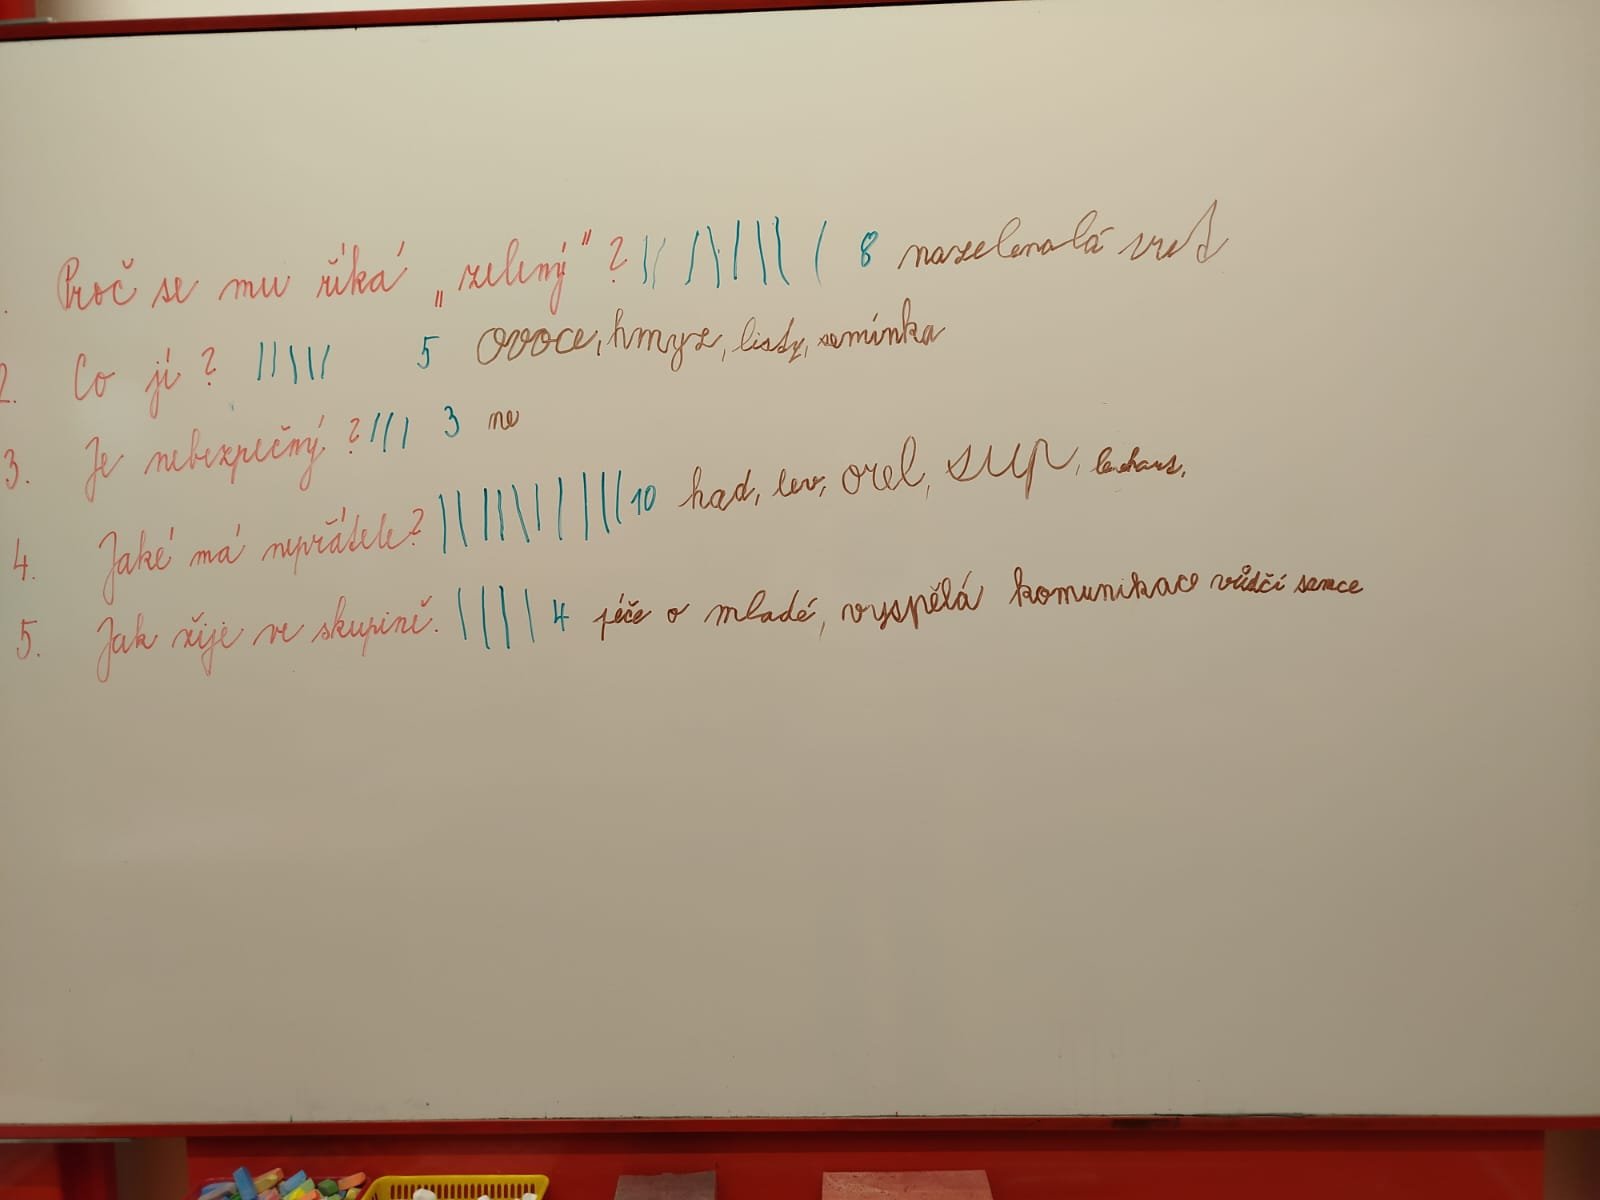 1. Proč se mu říká „zelený"? 8 nazelenalá srst
2. Co jí? 5 ovoce, hmyz, listy, semínka
3. Je nebezpečný? 3 ne
4. Jaké má nepřátele? 10 had, lev, orel, sup,
5. Jak žije ve skupině. 4 péče o mladé, vyspělá komunikace vůdčí samce